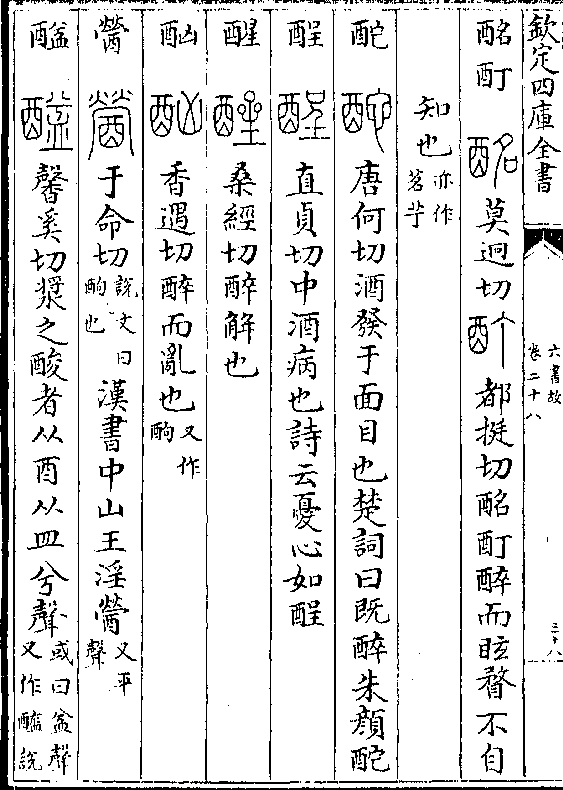 欽定四庫全書
六書故
卷二十八
三十八
酩酊 酩莫迥切酊都挺切酩酊醉而眩瞀不自
知也亦作茗艼
酡 酡唐何切酒發于面目也楚詞曰既醉朱顏酡
酲 酲直貞切中酒病也詩云憂心如酲
醒 醒桑經切醉解也
酗 香遇切醉而亂也又作㖃
醟 醟于命切說文曰酗也漢書中山王淫醟又平聲
醯 馨奚切漿之酸者从酉从皿兮聲或曰盆聲又作醯說